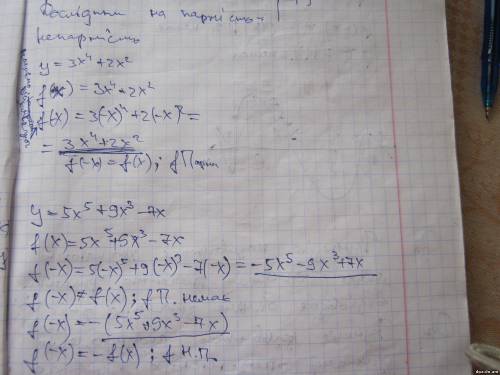 Дослідити на парність-
непарність
y = 3x⁴ + 2x²
f(x) = 3x⁴ + 2x²
f(x) = 3(-x)⁴ + 2(-x)² =
= 3x⁴ + 2x²
f(-x) = f(x); f Парна
y = 5x⁵ + 9x³ - 7x
f(x) = 5x⁵ + 9x³ - 7x
f(-x) = 5(-x)⁵ + 9(-x)³ - 7(-x) = -5x⁵ - 9x³ + 7x
f(-x) ≠ f(x); f П. немає
f(-x) = -(5x⁵ + 9x³ - 7x)
f(-x) = -f(x); f Н.П.